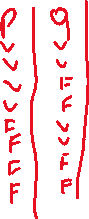 P | q |
V | V |
V | V |
V | F |
V | F |
F | V |
F | V |
F | F |
F | F |